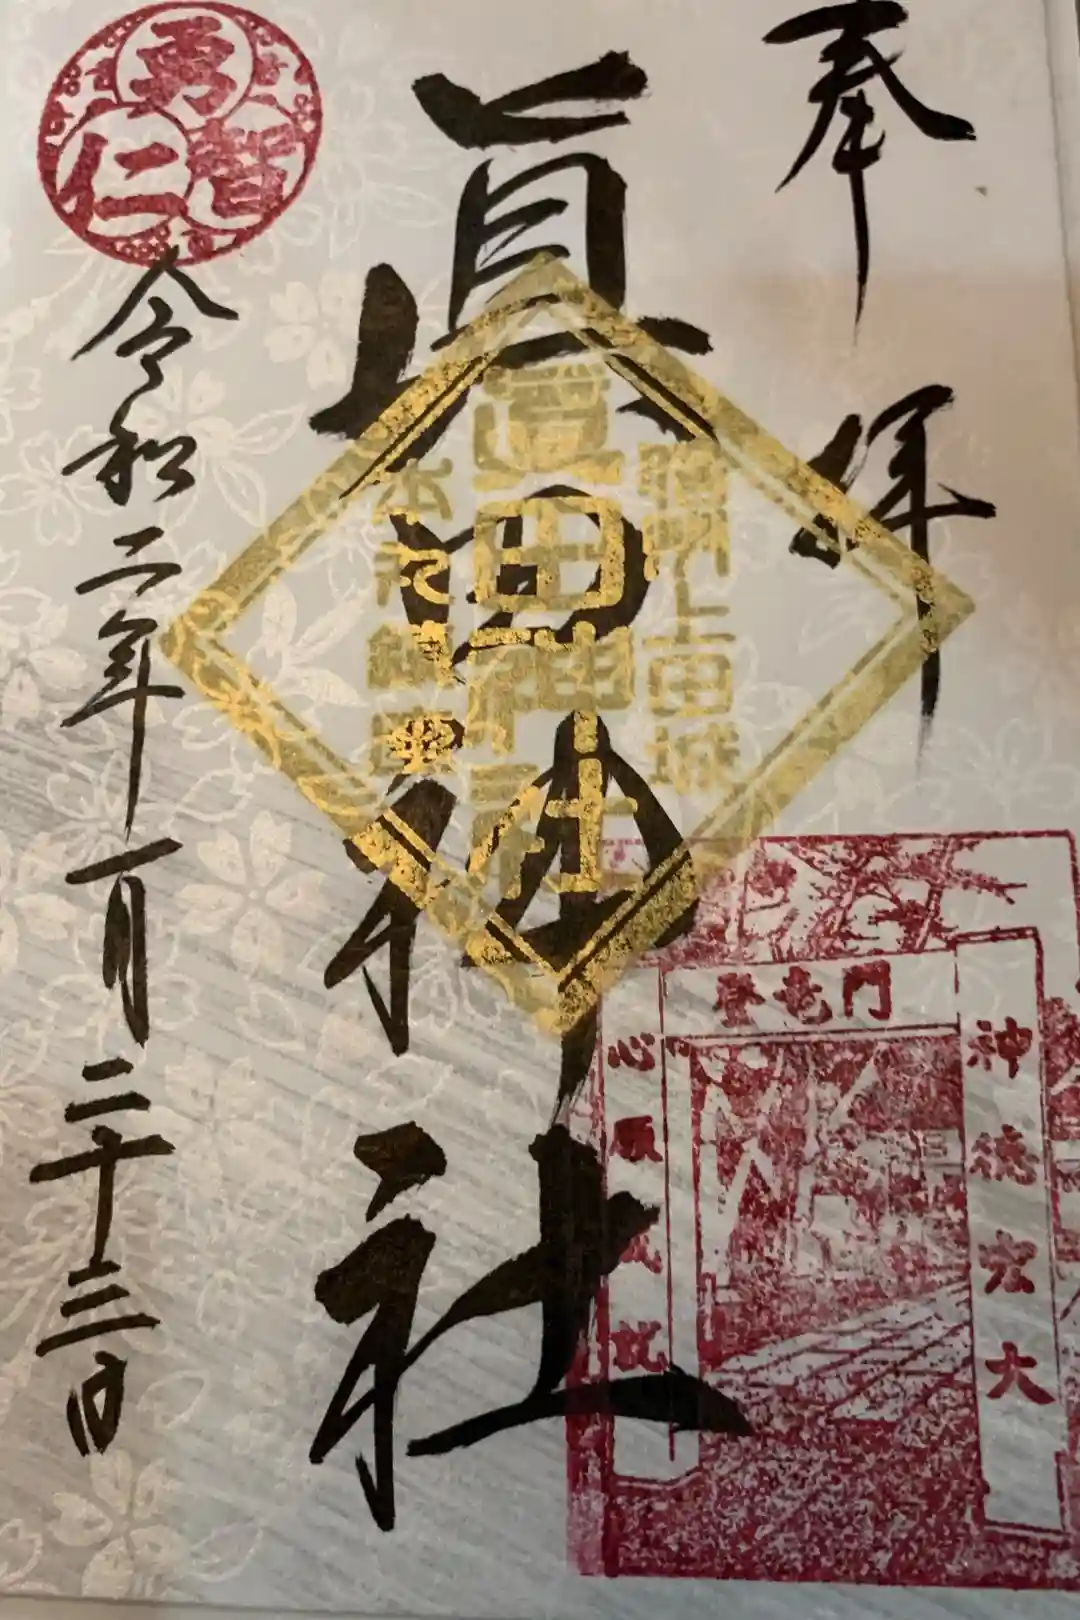 奉拝
眞田神社
令和二年一月二十三日
勇
仁智
上田城
眞田神社
本丸鎮座
登竜門
神徳宏大
心願成就